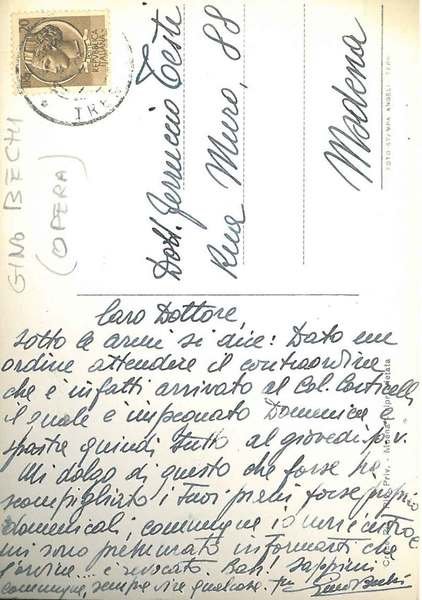 REPUBBLICA
ITALIANA
TRE
GINO BECHI
(OPERA)
Dott. Ferruccio Teste
Rua Muro, 88
Modena
FOTO STAMPA ANGELI
Caro Dottore,
Sotto le armi si dice: Dato un
ordine attendere il contraordine
che è infatti arrivato al Col. Corticelli
il quale è impegnato Domenica e
sposta quindi tutto al giovedì p.v.
Mi dolgo di questo che forse ha
scompigliato i Tuoi piani forse proprio
domenicali, comunque io
mi sono premurato informarti che
l'ordine è revocato. Bah! Sappimi
comunque, sempre per qualcosa. Tuo Gino Bechi
Priv. - Modena - riproprietata